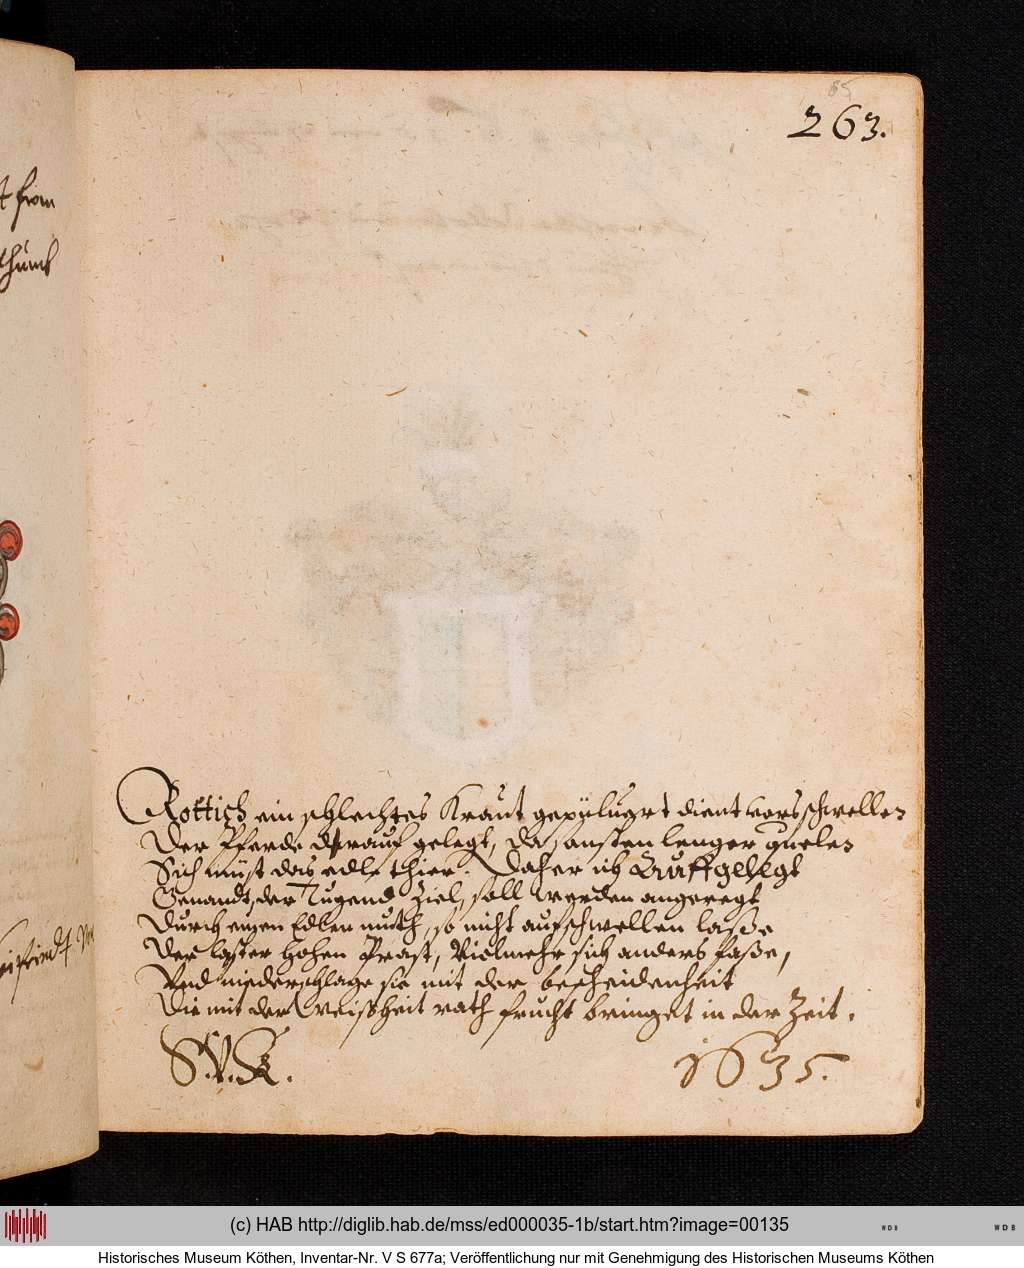 65
263.
t fran
Rottich ein schlechtes Kraut gepülugrt dient vors schwellen
Der Pferde drauf gelegt, da sonsten lenger quelen
Sich müst das edle thier. Daher ich Gutt gelegt
Genandt, der Tugend Ziel, soll werden angeregt
Durch eigen Edlen muth, so nicht aufschwellen laße
Der laster hohen Prast, Vielmehr sich anders faße,
Und niederschlage sie mit der bescheidenheit
Die mit der Weißheit rath frucht bringet in der Zeit.
S.V.K.
1635.
(c) HAB http://diglib.hab.de/mss/ed000035-1b/start.htm?image=00135
WDB
WDB
Historisches Museum Köthen, Inventar-Nr. V S 677a; Veröffentlichung nur mit Genehmigung des Historischen Museums Köthen